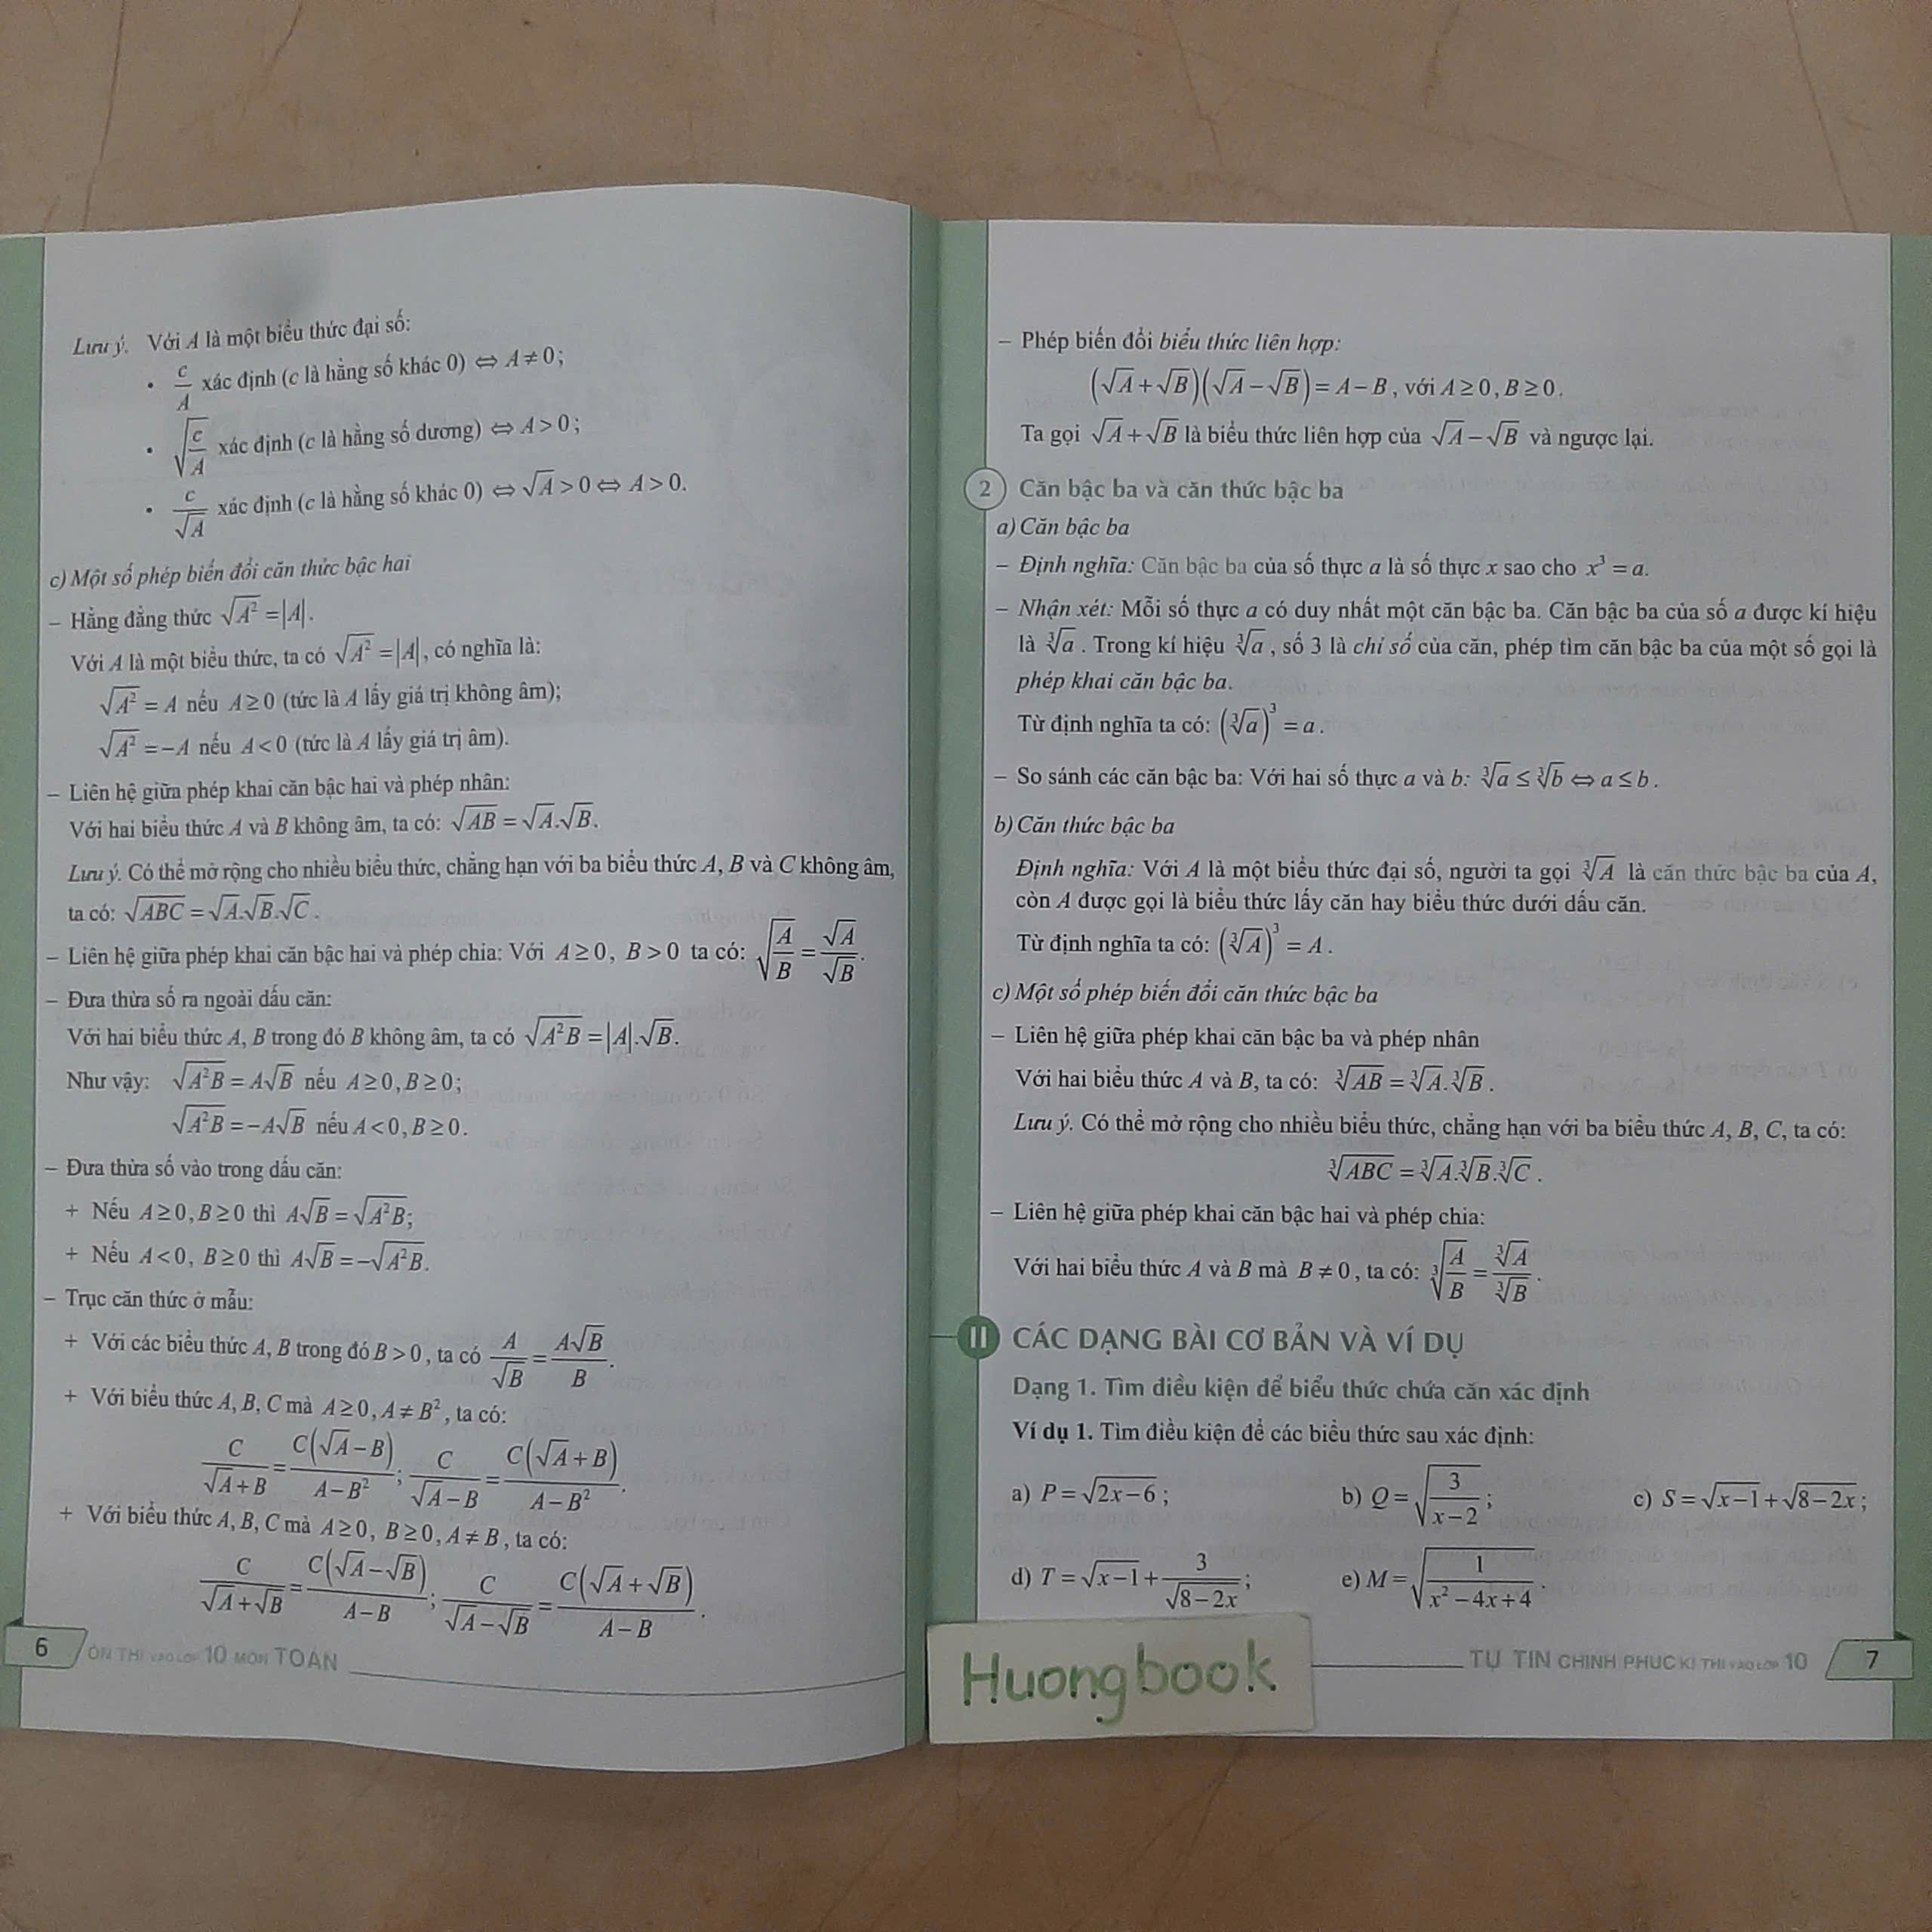 Lưu ý. Với A là một biểu thức đại số:
• c/A xác định (c là hằng số khác 0) ⇔ A ≠ 0;
• √(c/A) xác định (c là hằng số dương) ⇔ A > 0;
• c/√A xác định (c là hằng số khác 0) ⇔ √A > 0 ⇔ A > 0.
c) Một số phép biến đổi căn thức bậc hai
– Hằng đẳng thức √(A²) = |A|.
Với A là một biểu thức, ta có √(A²) = |A|, có nghĩa là:
√(A²) = A nếu A ≥ 0 (tức là A lấy giá trị không âm);
√(A²) = –A nếu A < 0 (tức là A lấy giá trị âm).
– Liên hệ giữa phép khai căn bậc hai và phép nhân:
Với hai biểu thức A và B không âm, ta có: √(AB) = √A.√B.
Lưu ý. Có thể mở rộng cho nhiều biểu thức, chẳng hạn với ba biểu thức A, B và C không âm,
ta có: √(ABC) = √A.√B.√C.
– Liên hệ giữa phép khai căn bậc hai và phép chia: Với A ≥ 0, B > 0 ta có: √(A/B) = √A/√B.
– Đưa thừa số ra ngoài dấu căn:
Với hai biểu thức A, B trong đó B không âm, ta có √(A²B) = |A|.√B.
Như vậy: √(A²B) = A√B nếu A ≥ 0, B ≥ 0;
√(A²B) = –A√B nếu A < 0, B ≥ 0.
– Đưa thừa số vào trong dấu căn:
+ Nếu A ≥ 0, B ≥ 0 thì A√B = √(A²B);
+ Nếu A < 0, B ≥ 0 thì A√B = –√(A²B).
– Trục căn thức ở mẫu:
+ Với các biểu thức A, B trong đó B > 0, ta có A/√B = A√B/B.
+ Với biểu thức A, B, C mà A ≥ 0, A ≠ B², ta có:
C/(√A + B) = C(√A – B)/(A – B²); C/(√A – B) = C(√A + B)/(A – B²).
+ Với biểu thức A, B, C mà A ≥ 0, B ≥ 0, A ≠ B, ta có:
C/(√A + √B) = C(√A – √B)/(A – B); C/(√A – √B) = C(√A + √B)/(A – B).
6 ÔN THI VÀO LỚP 10 MÔN TOÁN
– Phép biến đổi biểu thức liên hợp:
(√A + √B)(√A – √B) = A – B, với A ≥ 0, B ≥ 0.
Ta gọi √A + √B là biểu thức liên hợp của √A – √B và ngược lại.
2 Căn bậc ba và căn thức bậc ba
a) Căn bậc ba
– Định nghĩa: Căn bậc ba của số thực a là số thực x sao cho x³ = a.
– Nhận xét: Mỗi số thực a có duy nhất một căn bậc ba. Căn bậc ba của số a được kí hiệu
là ∛a. Trong kí hiệu ∛a, số 3 là chỉ số của căn, phép tìm căn bậc ba của một số gọi là
phép khai căn bậc ba.
Từ định nghĩa ta có: (∛a)³ = a.
– So sánh các căn bậc ba: Với hai số thực a và b: ∛a ≤ ∛b ⇔ a ≤ b.
b) Căn thức bậc ba
Định nghĩa: Với A là một biểu thức đại số, người ta gọi ∛A là căn thức bậc ba của A,
còn A được gọi là biểu thức lấy căn hay biểu thức dưới dấu căn.
Từ định nghĩa ta có: (∛A)³ = A.
c) Một số phép biến đổi căn thức bậc ba
– Liên hệ giữa phép khai căn bậc ba và phép nhân
Với hai biểu thức A và B, ta có: ∛(AB) = ∛A.∛B.
Lưu ý. Có thể mở rộng cho nhiều biểu thức, chẳng hạn với ba biểu thức A, B, C, ta có:
∛(ABC) = ∛A.∛B.∛C.
– Liên hệ giữa phép khai căn bậc hai và phép chia:
Với hai biểu thức A và B mà B ≠ 0, ta có: ∛(A/B) = ∛A/∛B.
II CÁC DẠNG BÀI CƠ BẢN VÀ VÍ DỤ
Dạng 1. Tìm điều kiện để biểu thức chứa căn xác định
Ví dụ 1. Tìm điều kiện để các biểu thức sau xác định:
a) P = √(2x – 6); b) Q = √(3/(x – 2)); c) S = √(x – 1) + √(8 – 2x);
d) T = √(x – 1) + 3/√(8 – 2x); e) M = √(1/(x² – 4x + 4)).
TỰ TIN CHINH PHỤC KÌ THI VÀO LỚP 10 7
Huongbook